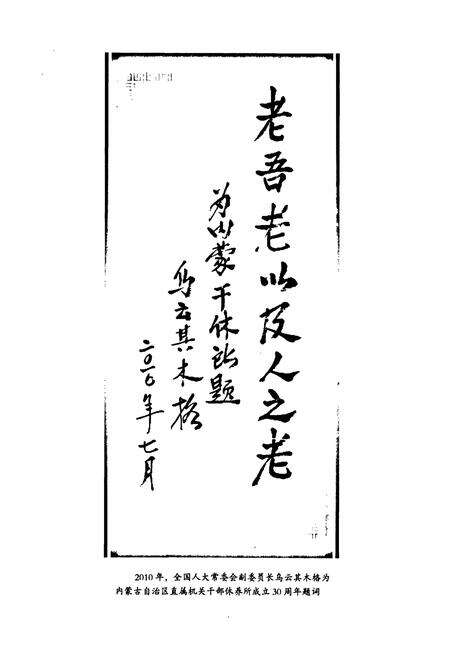 老吾老以及人之老
为内蒙干休所题
乌云其木格
二〇一〇年七月
2010年，全国人大常委会副委员长乌云其木格为
内蒙古自治区直属机关干部休养所成立30周年题词